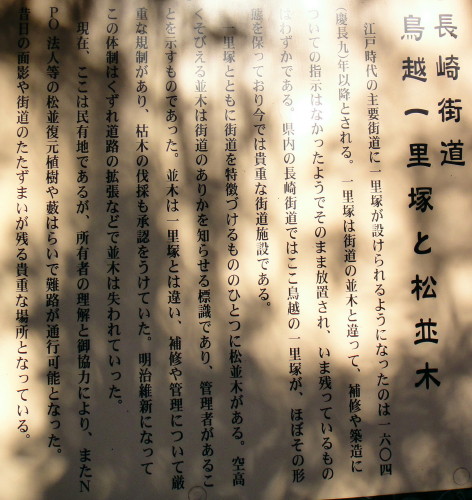 長崎街道
鳥越一里塚と松並木
江戸時代の主要街道に一里塚が設けられるようになったのは一六〇四
(慶長九)年以降とされる。一里塚は街道の並木と違って、補修や築造に
ついての指示はなかったようでそのまま放置され、いま残っているもの
はわずかである。県内の長崎街道ではここ鳥越の一里塚が、ほぼその形
態を保っており今では貴重な街道施設である。
一里塚とともに街道を特徴づけるもののひとつに松並木がある。空高
くそびえる並木は街道のありかを知らせる標識であり、管理者があるこ
とを示すものであった。並木は一里塚とは違い、補修や管理について厳
重な規制があり、枯木の伐採も承認をうけていた。明治維新になって
この体制はくずれ道路の拡張などで並木は失われていった。
現在、ここは民有地であるが、所有者の理解と御協力により、またN
PO法人等の松並復元植樹や藪はらいで難路が通行可能となった。
昔日の面影や街道のたたずまいが残る貴重な場所となっている。